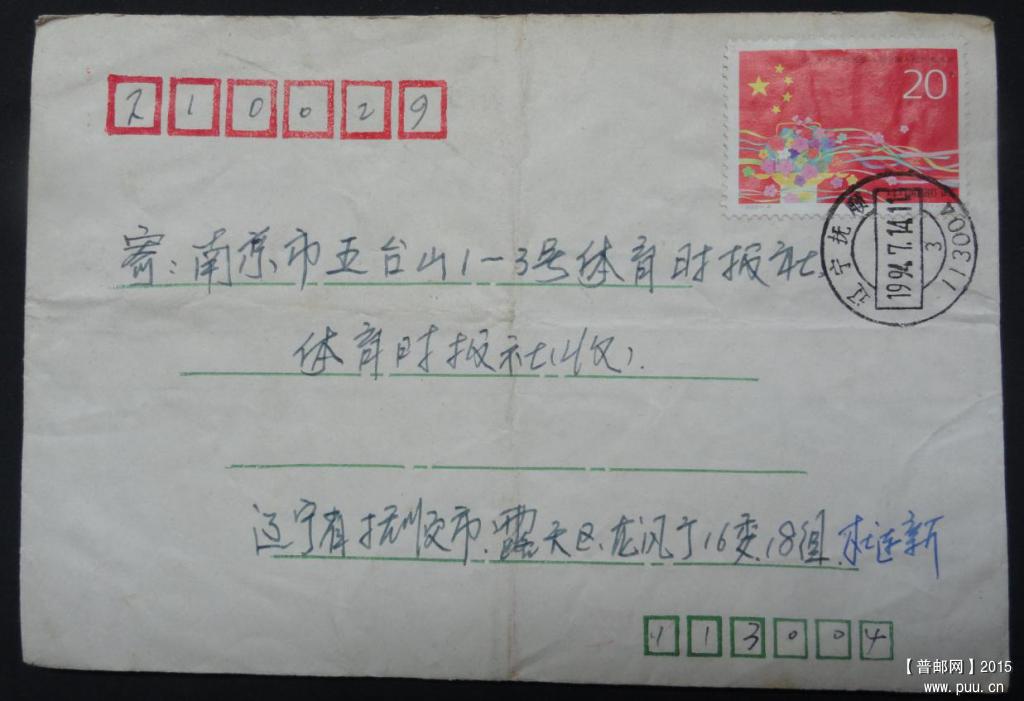 210029
20
辽宁抚顺
1994.7.14.11
3
113004
寄:南京市五台山1-3号体育时报社
体育时报社(收)
辽宁省抚顺市.露天区.龙凤丁16委.18组.杜连新
113004
【普邮网】2015
www.puu.cn